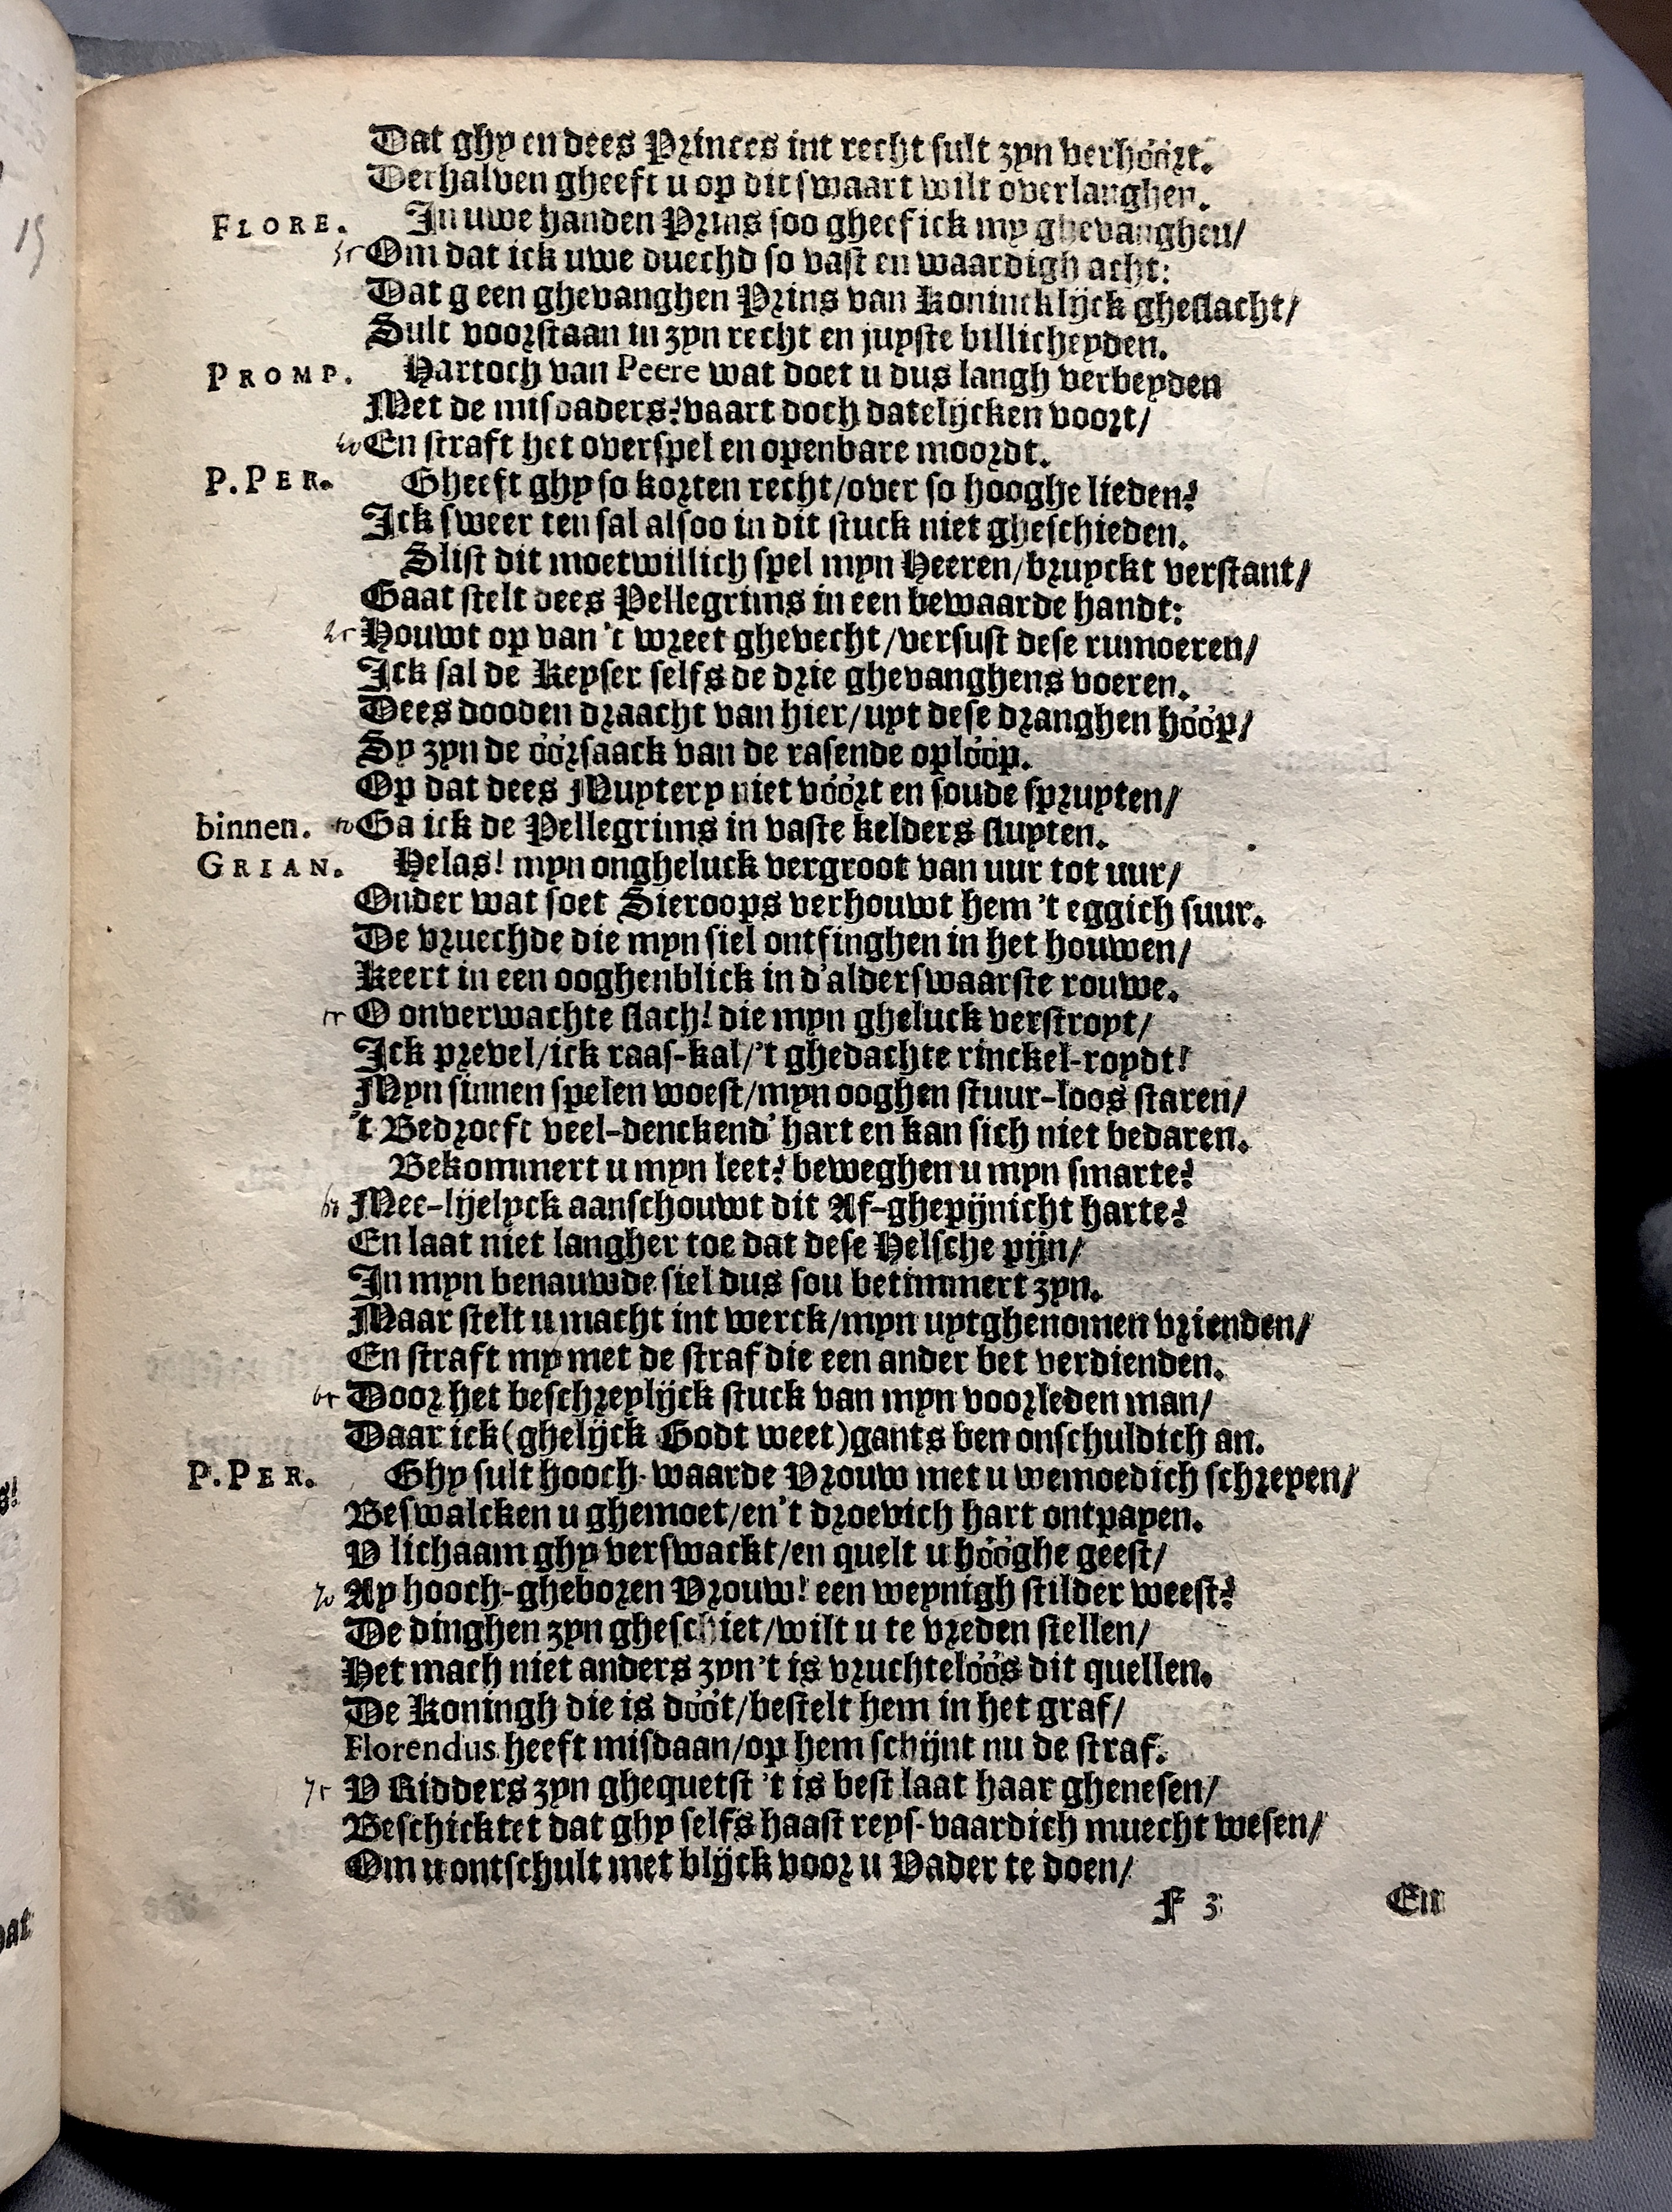 Dat ghy en dees Princes int recht sult zyn verhóórt.
Derhalven gheeft u op dit swaart wilt overlanghen.
FLORE. In uwe handen Prins soo gheef ick my ghevanghen/
35 Om dat ick uwe duechd so vast en waardigh acht:
Dat g een ghevanghen Prins van Konincklijck gheslacht/
Sult voorstaan in zyn recht en juyste billicheyden.
PROMP. Hartoch van Peere wat doet u dus langh verbeyden
Met de misdaders? vaart doch datelijcken voort/
40 En straft het overspel en openbare moordt.
P. PER. Gheeft ghy so korten recht/over so hooghe lieden?
Ick sweer ten sal alsoo in dit stuck niet gheschieden.
Slist dit moetwillich spel myn Heeren/bruyckt verstant/
Gaat stelt dees Pellegrims in een bewaarde handt:
45 Houwt op van 't wreet ghevecht/versust dese rumoeren/
Ick sal de Keyser selfs de drie ghevanghens voeren.
Dees dooden draacht van hier/uyt dese dranghen hóóp/
Sy zyn de óórsaack van de rasende oplóóp.
Op dat dees Muytery niet vóórt en soude spruyten/
binnen. 50 Ga ick de Pellegrims in vaste kelders sluyten.
GRIAN. Helas! myn ongheluck vergroot van uur tot uur/
Onder wat soet Sieroops verhouwt hem 't eggich suur.
De vruechde die myn siel ontfinghen in het houwen/
Keert in een ooghenblick in d'alderswaarste rouwe.
55 O onverwachte slach! die myn gheluck verstroyt/
Ick prevel/ick raas-kal/'t ghedachte rinckel-roydt!
Myn sinnen spelen woest/myn ooghen stuur-loos staren/
't Bedroeft veel-denckend' hart en kan sich niet bedaren.
Bekommert u myn leet? beweghen u myn smarte?
60 Mee-lijelyck aanschouwt dit Af-ghepijnicht harte?
En laat niet langher toe dat dese Helsche pijn/
In myn benauwde siel dus sou betimmert zyn.
Maar stelt u macht int werck/myn uytghenomen vrienden/
En straft my met de straf die een ander bet verdienden.
65 Door het beschreylijck stuck van myn voorleden man/
Daar ick (ghelijck Godt weet) gants ben onschuldich an.
P. PER. Ghy sult hooch-waarde Vrouw met u wemoedich schreyen/
Beswalcken u ghemoet/en 't droevich hart ontpayen.
V lichaam ghy verswackt/en quelt u hóóghe geest/
70 Ay hooch-gheboren Vrouw! een weynigh stilder weest?
De dinghen zyn gheschiet/wilt u te vreden stellen/
Het mach niet anders zyn 't is vruchtelóós dit quellen.
De Koningh die is dóót/bestelt hem in het graf/
Florendus heeft misdaan/op hem schijnt nu de straf.
75 V Ridders zyn ghequetst 't is best laat haar ghenesen/
Beschicktet dat ghy selfs haast reys-vaardich muecht wesen/
Om u ontschult met blijck voor u Vader te doen/
F 3 En